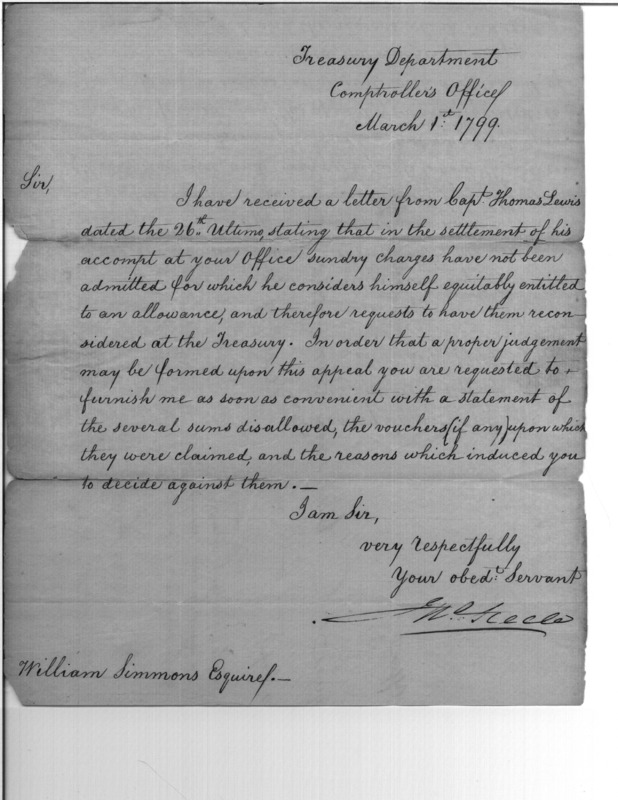 Treasury Department
Comptroller's Office
March 1st. 1799.
Sir,
I have received a letter from Capt. Thomas Lewis
dated the 26th. Ultimo, stating that in the settlement of his
accompt at your Office sundry charges have not been
admitted for which he considers himself equitably entitled
to an allowance, and therefore requests to have them recon-
sidered at the Treasury. In order that a proper judgement
may be formed upon this appeal you are requested to
furnish me as soon as convenient with a statement of
the several sums disallowed, the vouchers (if any) upon which
they were claimed, and the reasons which induced you
to decide against them.—
I am Sir,
very respectfully
Your obedt. Servant
Jno. Steele
William Simmons Esquire.—